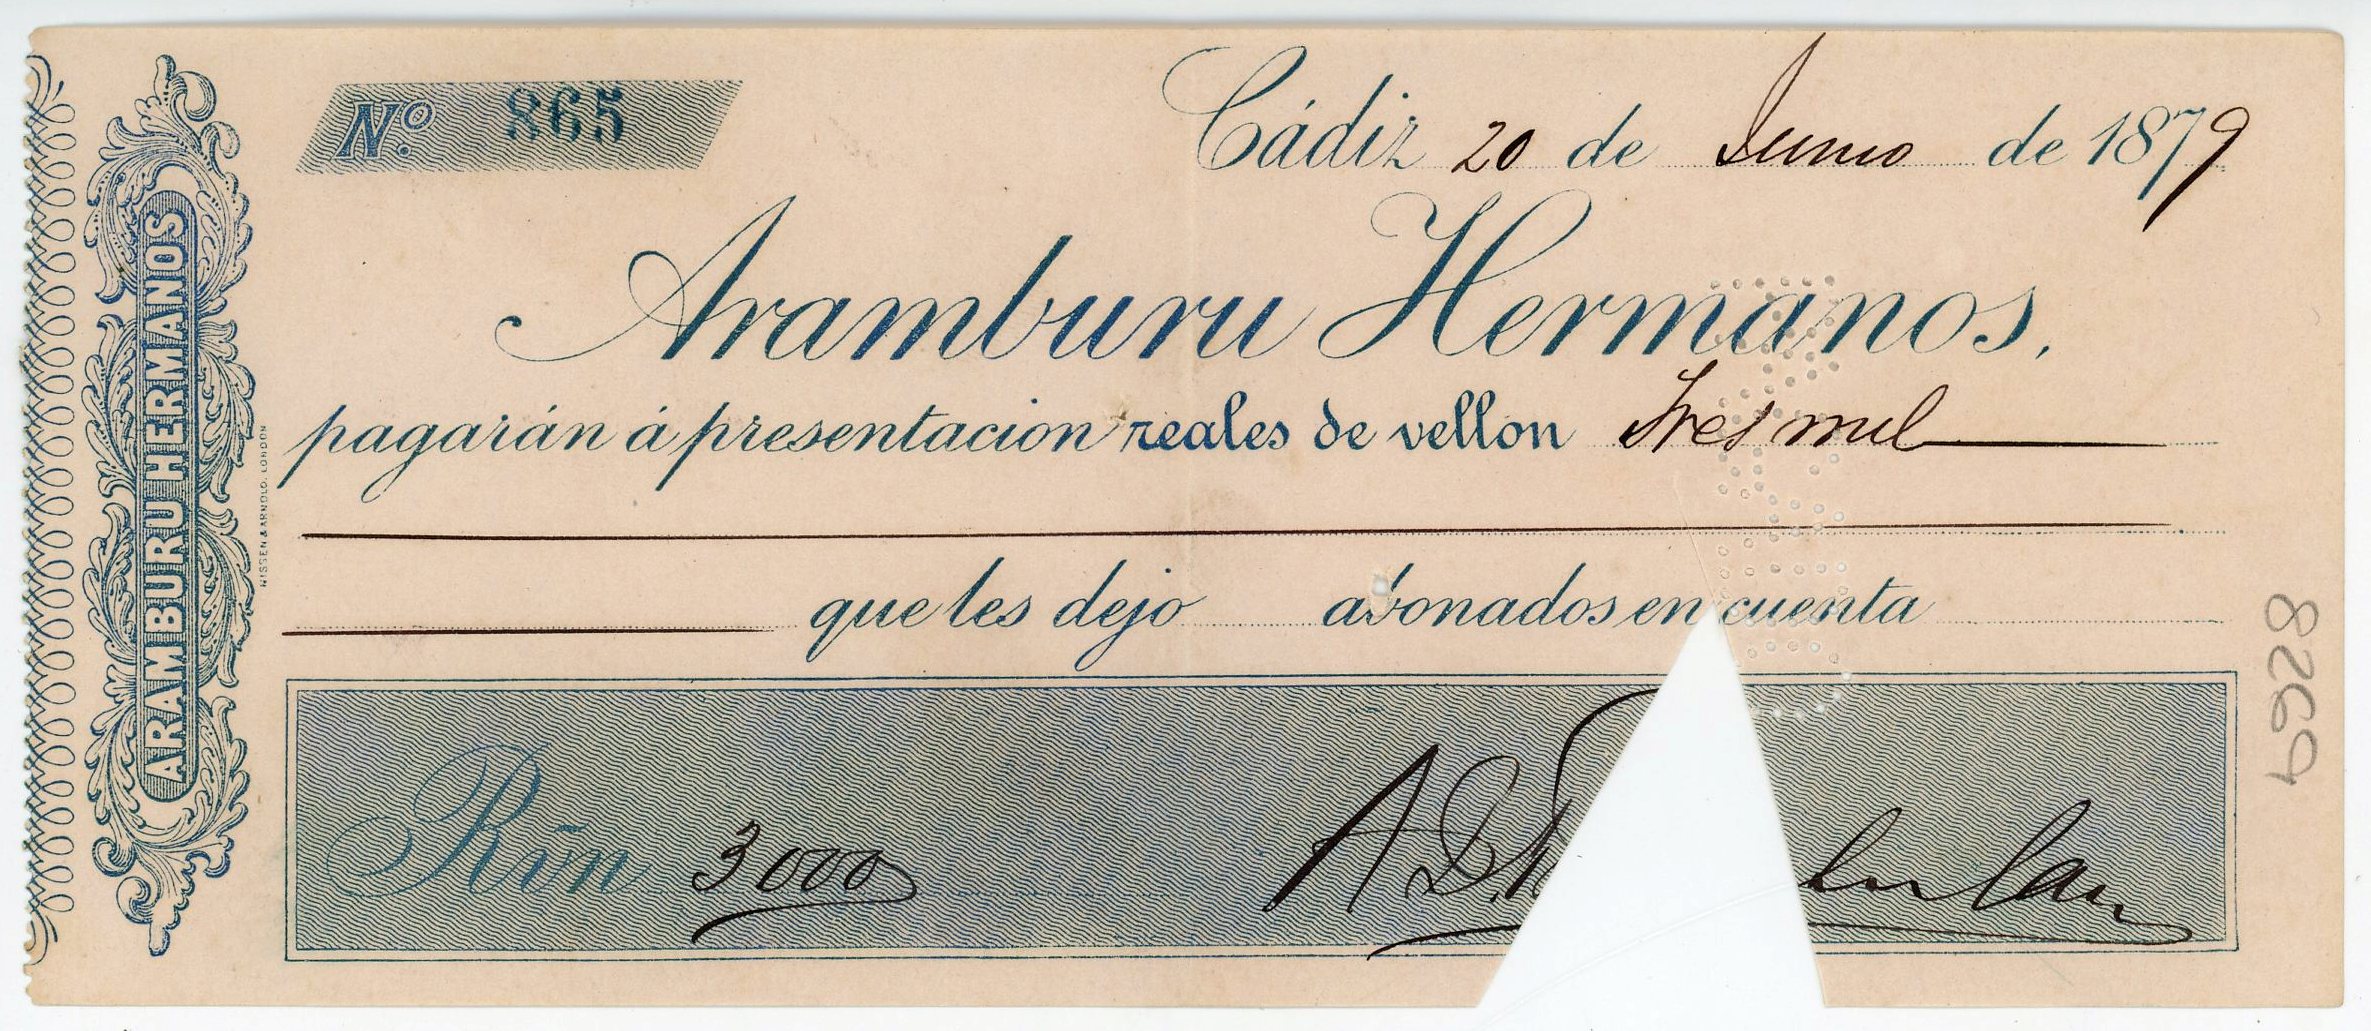 Nº 865
Cádiz 20 de Junio de 1879
ARAMBURU HERMANOS
Aramburu Hermanos,
pagarán á presentacion reales de vellon Tres mil
que les dejo abonados en cuenta
NISSEN & ARNOLD, LONDON
Rvn̄ 3000
6928